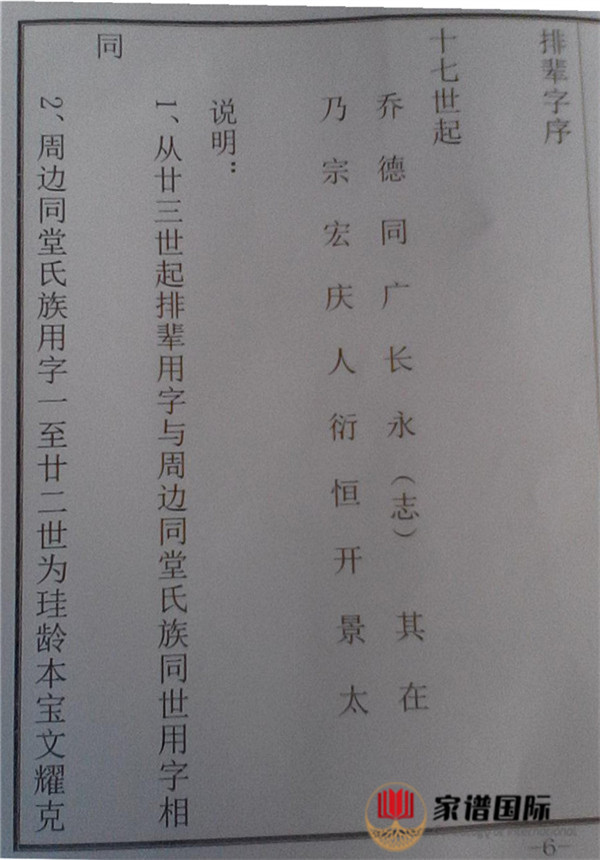 排辈字序
十七世起
乔德同广长永（志）其在
乃宗宏庆人衍恒开景太
说明：
1、从廿三世起排辈用字与周边同堂氏族同世用字相
同
2、周边同堂氏族用字一至廿二世为珪龄本宝文耀克
家谱国际
-6-